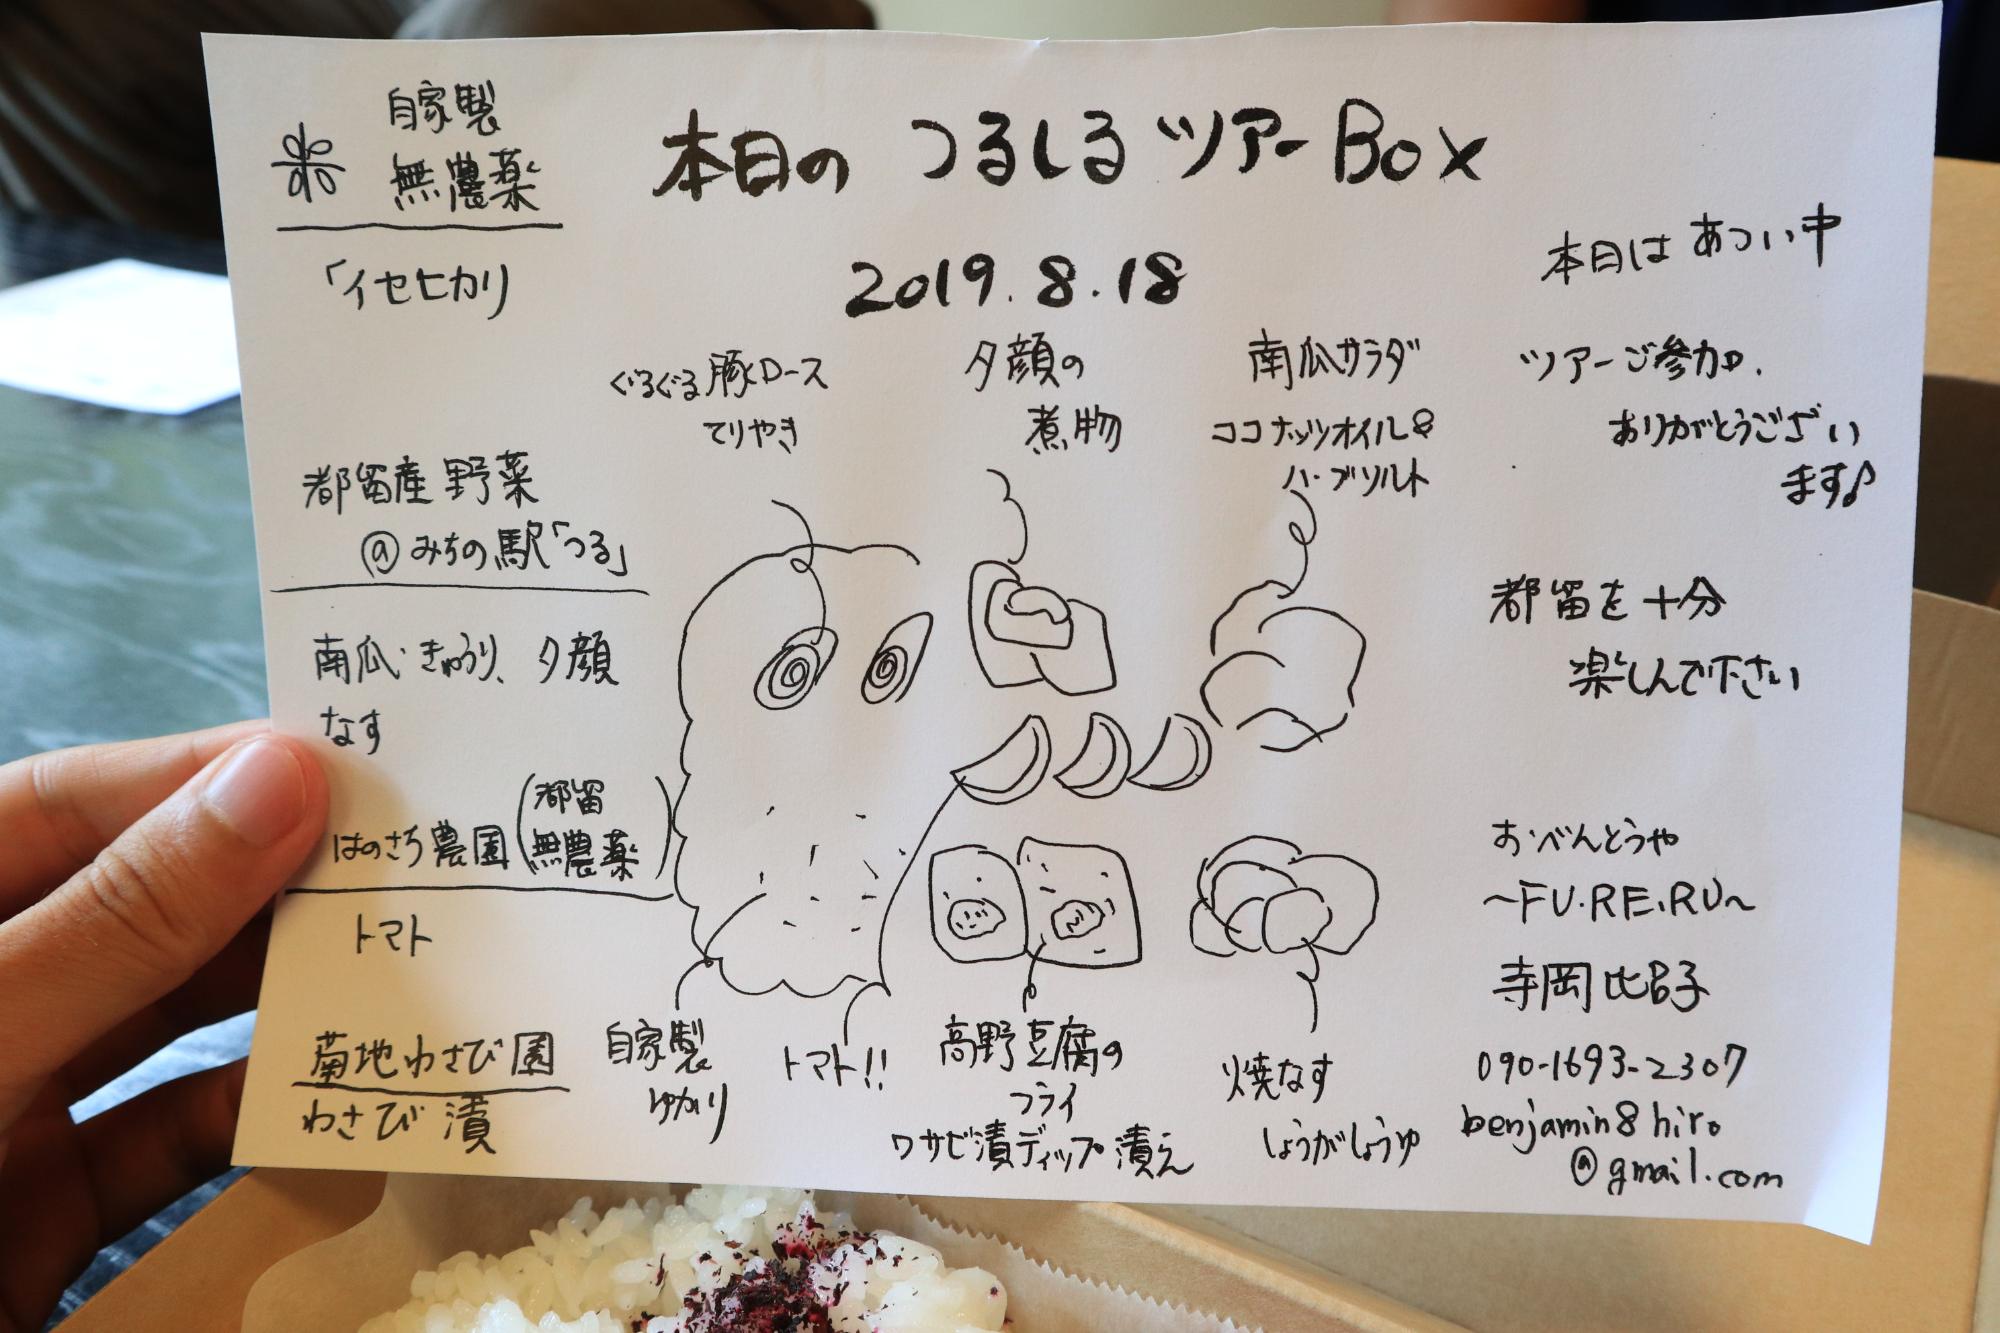 本日の つるしるツアーBox
2019.8.18
米 自家製
無農薬
「イセヒカリ
都留産野菜
@みちの駅「つる」
南瓜・きゅうり、夕顔
なす
はのさち農園(都留
無農薬)
トマト
菊地わさび園
わさび漬
ぐるぐる豚ロース
てりやき
夕顔の
煮物
南瓜サラダ
ココナッツオイル&
ハーブソルト
自家製
ゆかり
トマト!!
高野豆腐の
フライ
ワサビ漬ディップ漬え
焼なす
しょうがしょうゆ
本日は あつい中
ツアーご参加、
ありがとうござい
ます♪
都留を十分
楽しんで下さい
お・べんとうや
〜FU・RE・RU〜
寺岡比呂子
090-1693-2307
benjamin8hiro
@gmail.com